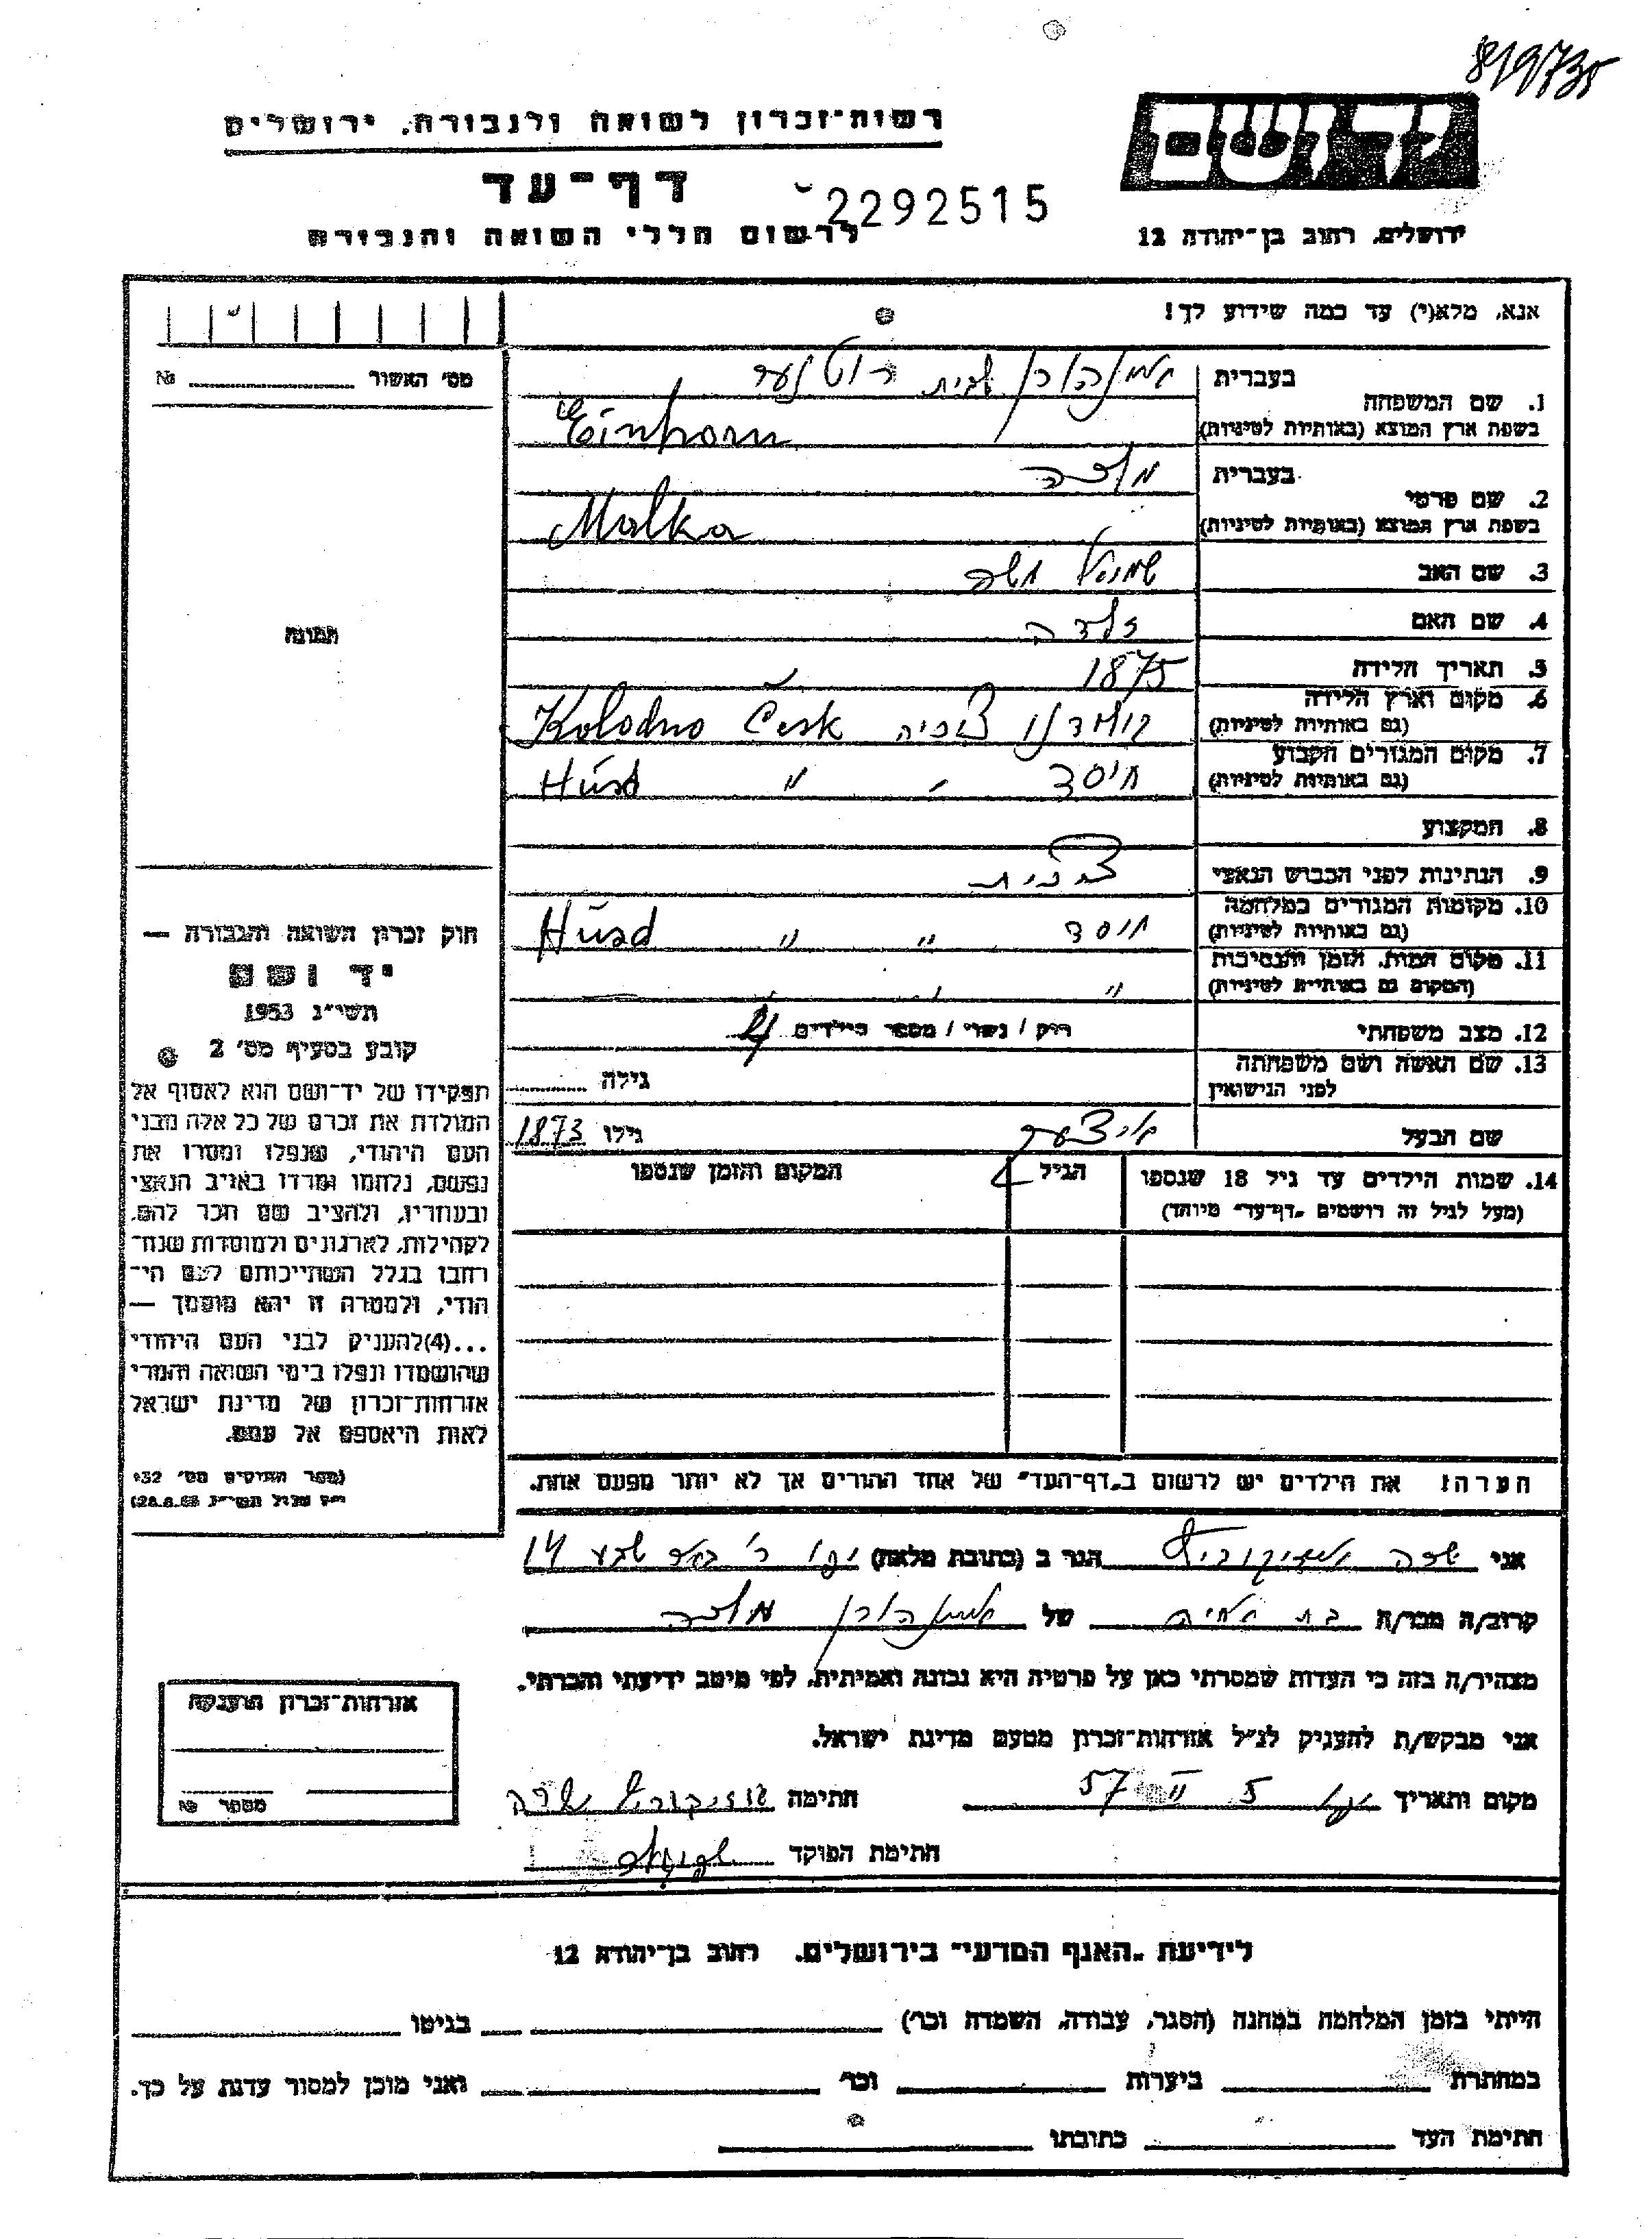 819735
יד ושם
רשות־זכרון לשואה ולגבורה, ירושלים
דף־עד
2292515
לרשום חללי השואה והגבורה
ירושלים, רחוב בן־יהודה 12
אנא, מלא(י) עד כמה שידוע לך!
מס׳ האשור № 
תמונה
1. שם המשפחה
בעברית איינהורן לבית
בשפת ארץ המוצא (באותיות לטיניות) Einhorn
2. שם פרטי
בעברית מלכה
בשפת ארץ המוצא (באותיות לטיניות) Malka
3. שם האב שמואל משה
4. שם האם
5. תאריך הלידה 1875
6. מקום וארץ הלידה
(גם באותיות לטיניות) קולודנו צ׳כיה Kolodno Česk
7. מקום המגורים הקבוע
(גם באותיות לטיניות) חוסד " " Húsd
8. המקצוע
9. הנתינות לפני הכבוש הנאצי צ׳כית
10. מקומות המגורים במלחמה
(גם באותיות לטיניות) חוסד " " Húsd
11. מקום המות, הזמן והנסיבות
(המקום גם באותיות לטיניות) "
12. מצב משפחתי רוק / נשוי / מספר הילדים
13. שם האשה ושם משפחתה
לפני הנישואין גילה
שם הבעל גילו 1873
14. שמות הילדים עד גיל 18 שנספו
(מעל לגיל זה רושמים „דף־עד״ מיוחד)
הגיל
המקום והזמן שנספו
חוק זכרון השואה והגבורה —
יד ושם
תשי״ג 1953
קובע בסעיף מס׳ 2
תפקידו של יד־ושם הוא לאסוף אל
המולדת את זכרם של כל אלה מבני
העם היהודי, שנפלו ומסרו את
נפשם, נלחמו ומרדו באויב הנאצי
ובעוזריו, ולהציב שם וזכר להם,
לקהילות, לארגונים ולמוסדות שנח־
רבו בגלל השתייכותם לעם הי־
הודי, ולמטרה זו יהא מוסמך —
...(4)להעניק לבני העם היהודי
שהושמדו ונפלו בימי השואה והמרי
אזרחות־זכרון של מדינת ישראל
לאות היאספם אל עמם.
(ספר החוקים מס׳ 132
י״ז אלול תשי״ג 28.8.53)
הערה: את הילדים יש לרשום ב„דף־העד״ של אחד ההורים אך לא יותר מפעם אחת.
אני שרה הגר ב (כתובת מלאה) יפו באר שבע 14
קרוב/ה מכר/ה בת אחיה של איינהורן מלכה
מצהיר/ה בזה כי העדות שמסרתי כאן על פרטיה היא נכונה ואמיתית, לפי מיטב ידיעתי והכרתי.
אני מבקש/ת להעניק לנ״ל אזרחות־זכרון מטעם מדינת ישראל.
מקום ותאריך 5 II 57 חתימה שרה
חתימת הפוקד
אזרחות־זכרון הוענקה
מספר №
לידיעת „האגף המדעי״ בירושלים. רחוב בן־יהודה 12
הייתי בזמן המלחמה במחנה (הסגר, עבודה, השמדה וכר׳) בגיטו
במחתרת ביערות וכר׳ ואני מוכן למסור עדות על כך.
חתימת העד כתובתו